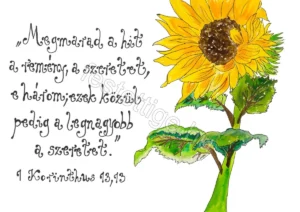 „Megmarad a hit
a remény, a szeretet,
e három; ezek közül
pedig a legnagyobb
a szeretet."
1 Korinthus 13,13